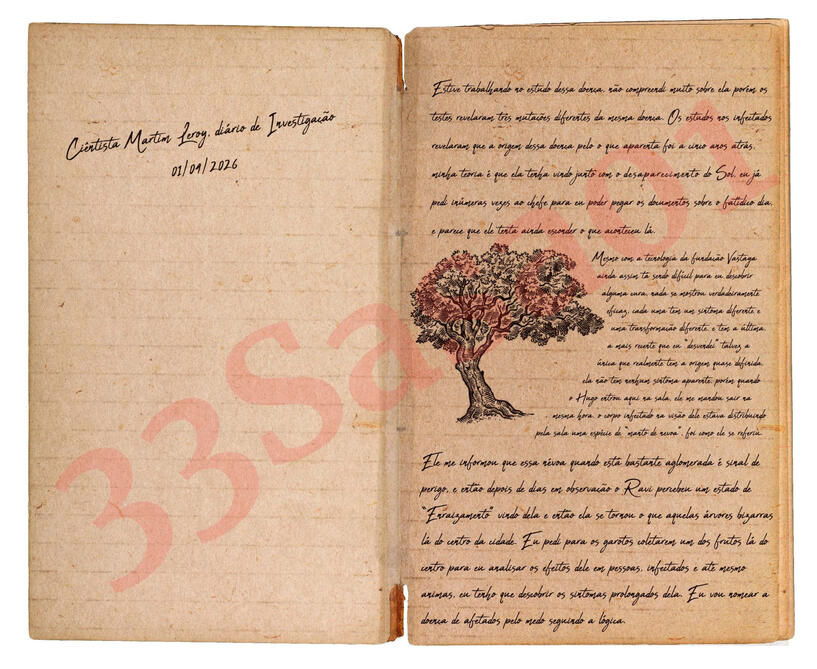 Ciêntista Martim Leroy, diário de Investigação
01/09/2026
Estive trabalhando no estudo dessa doença, não compreendi muito sobre ela porém os
testes revelaram três mutações diferentes da mesma doença. Os estudos nos infectados
revelaram que a origem dessa doença pelo o que aparenta foi a cinco anos atrás,
minha teoria é que ela tenha vindo junto com o desaparecimento do Sol, eu já
pedi inúmeras vezes ao chefe para eu poder pegar os documentos sobre o fatídico dia,
e parece que ele tenta ainda esconder o que aconteceu lá.
Mesmo com a tecnologia da fundação Vastaga
ainda assim tá sendo difícil para eu descobrir
alguma cura, nada se mostrou verdadeiramente
eficaz, cada uma tem um sintoma diferente e
uma transformação diferente, e tem a última,
a mais recente que eu "desvendei" talvez a
única que realmente tem a origem quase definida,
ela não tem nenhum sintoma aparente, porém quando
o Hugo entrou aqui na sala, ele me mandou sair na
mesma hora, o corpo infectado na visão dele estava distribuindo
pela sala uma espécie de "manto de nevoa", foi como ele se referiu.
Ele me informou que essa névoa quando está bastante aglomerada é sinal de
perigo, e então depois de dias em observação o Ravi percebeu um estado de
"Enraizamento" vindo dela e então ela se tornou o que aquelas árvores bizarras
lá do centro da cidade. Eu pedi para os garotos coletarem um dos frutos lá do
centro para eu analisar os efeitos dele em pessoas, infectados e até mesmo
animas, eu tenho que descobrir os sintomas prolongados dela. Eu vou nomear a
doença de afetados pelo medo seguindo a lógica.
33Sa